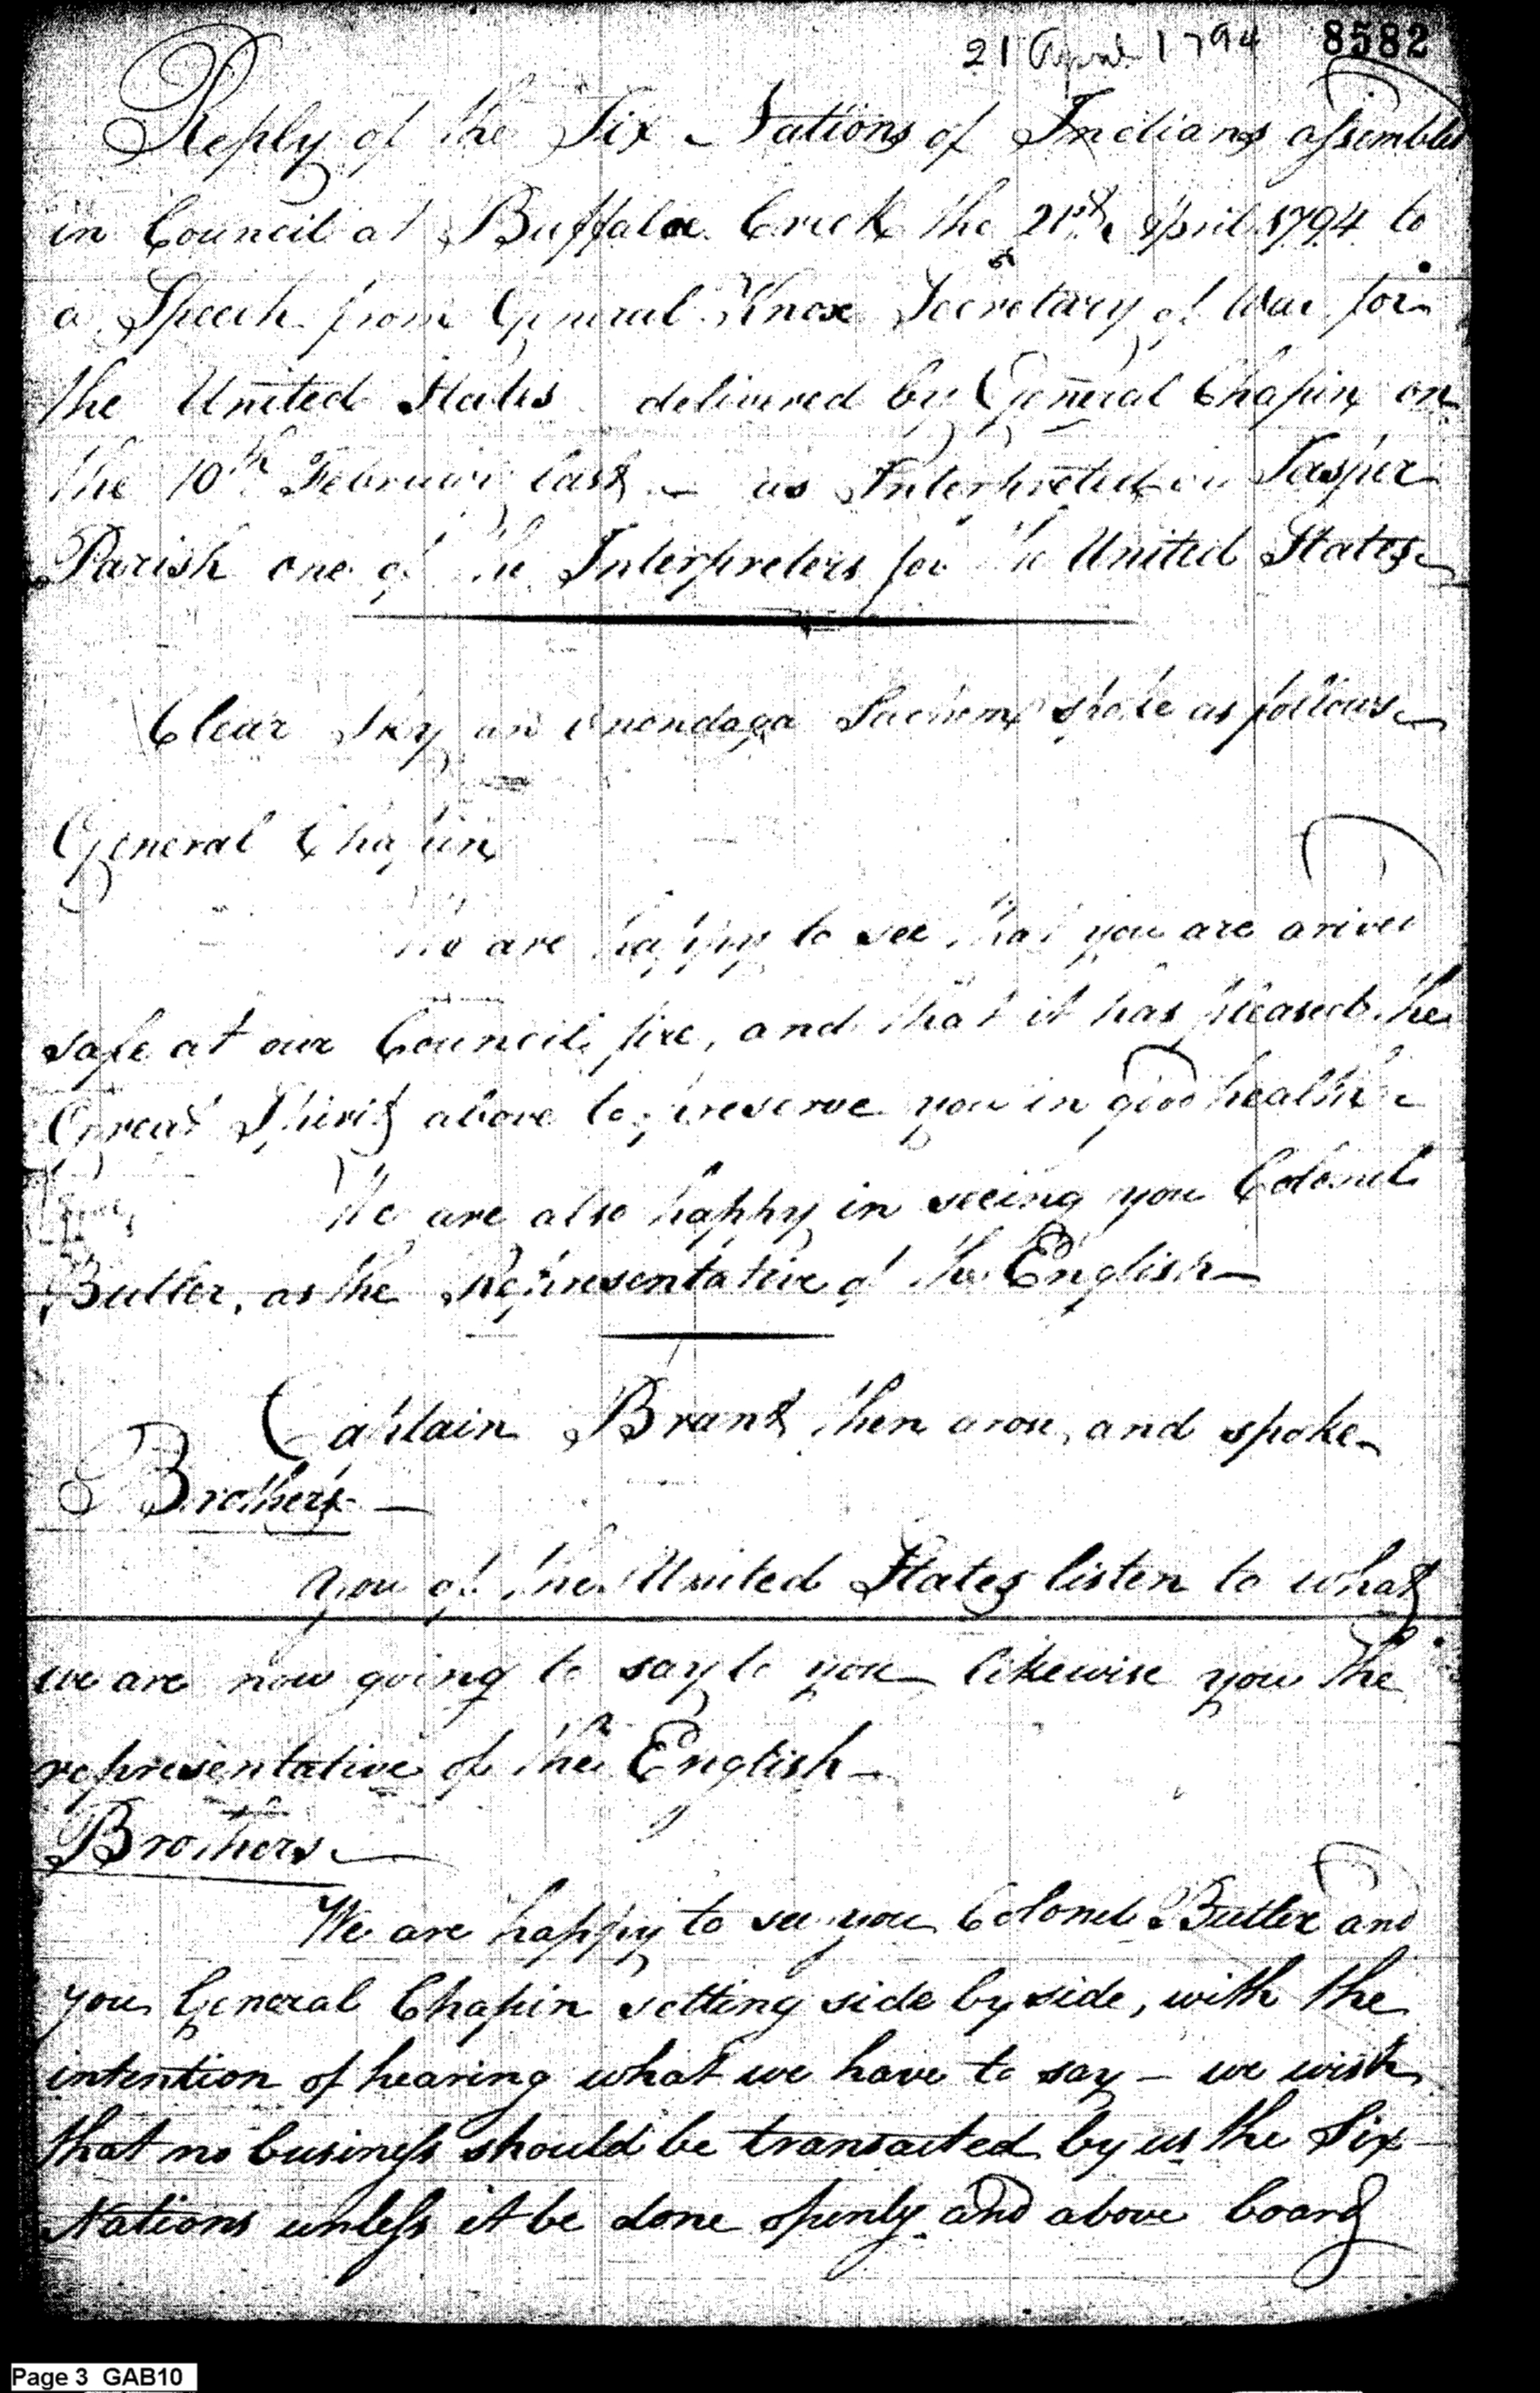 21 April 1794 8582
Reply of the Six Nations of Indians assembled
in Council at Buffaloe Creek the 21st April 1794 to
a Speech from General Knox Secretary of War for
the United States delivered by General Chapin on
the 10th February last — as Interpreted by Jasper
Parish one of the Interpreters for the United States
Clear Sky an Onondaga Sachem spoke as follows
General Chapin
We are happy to see that you are arived
safe at our Council fire, and that it has pleased the
Great Spirit above to preserve you in good health
We are also happy in seeing you Colonel
Butler, as the Representative of the English —
Captain Brant then arose, and spoke
Brothers —
You of the United States listen to what
we are now going to say to you likewise you the
representative of the English
Brothers —
We are happy to see you Colonel Butler and
you General Chapin setting side by side, with the
intention of hearing what we have to say — we wish
that no business should be transacted by us the Six
Nations unless it be done openly and above board
Page 3 GAB10